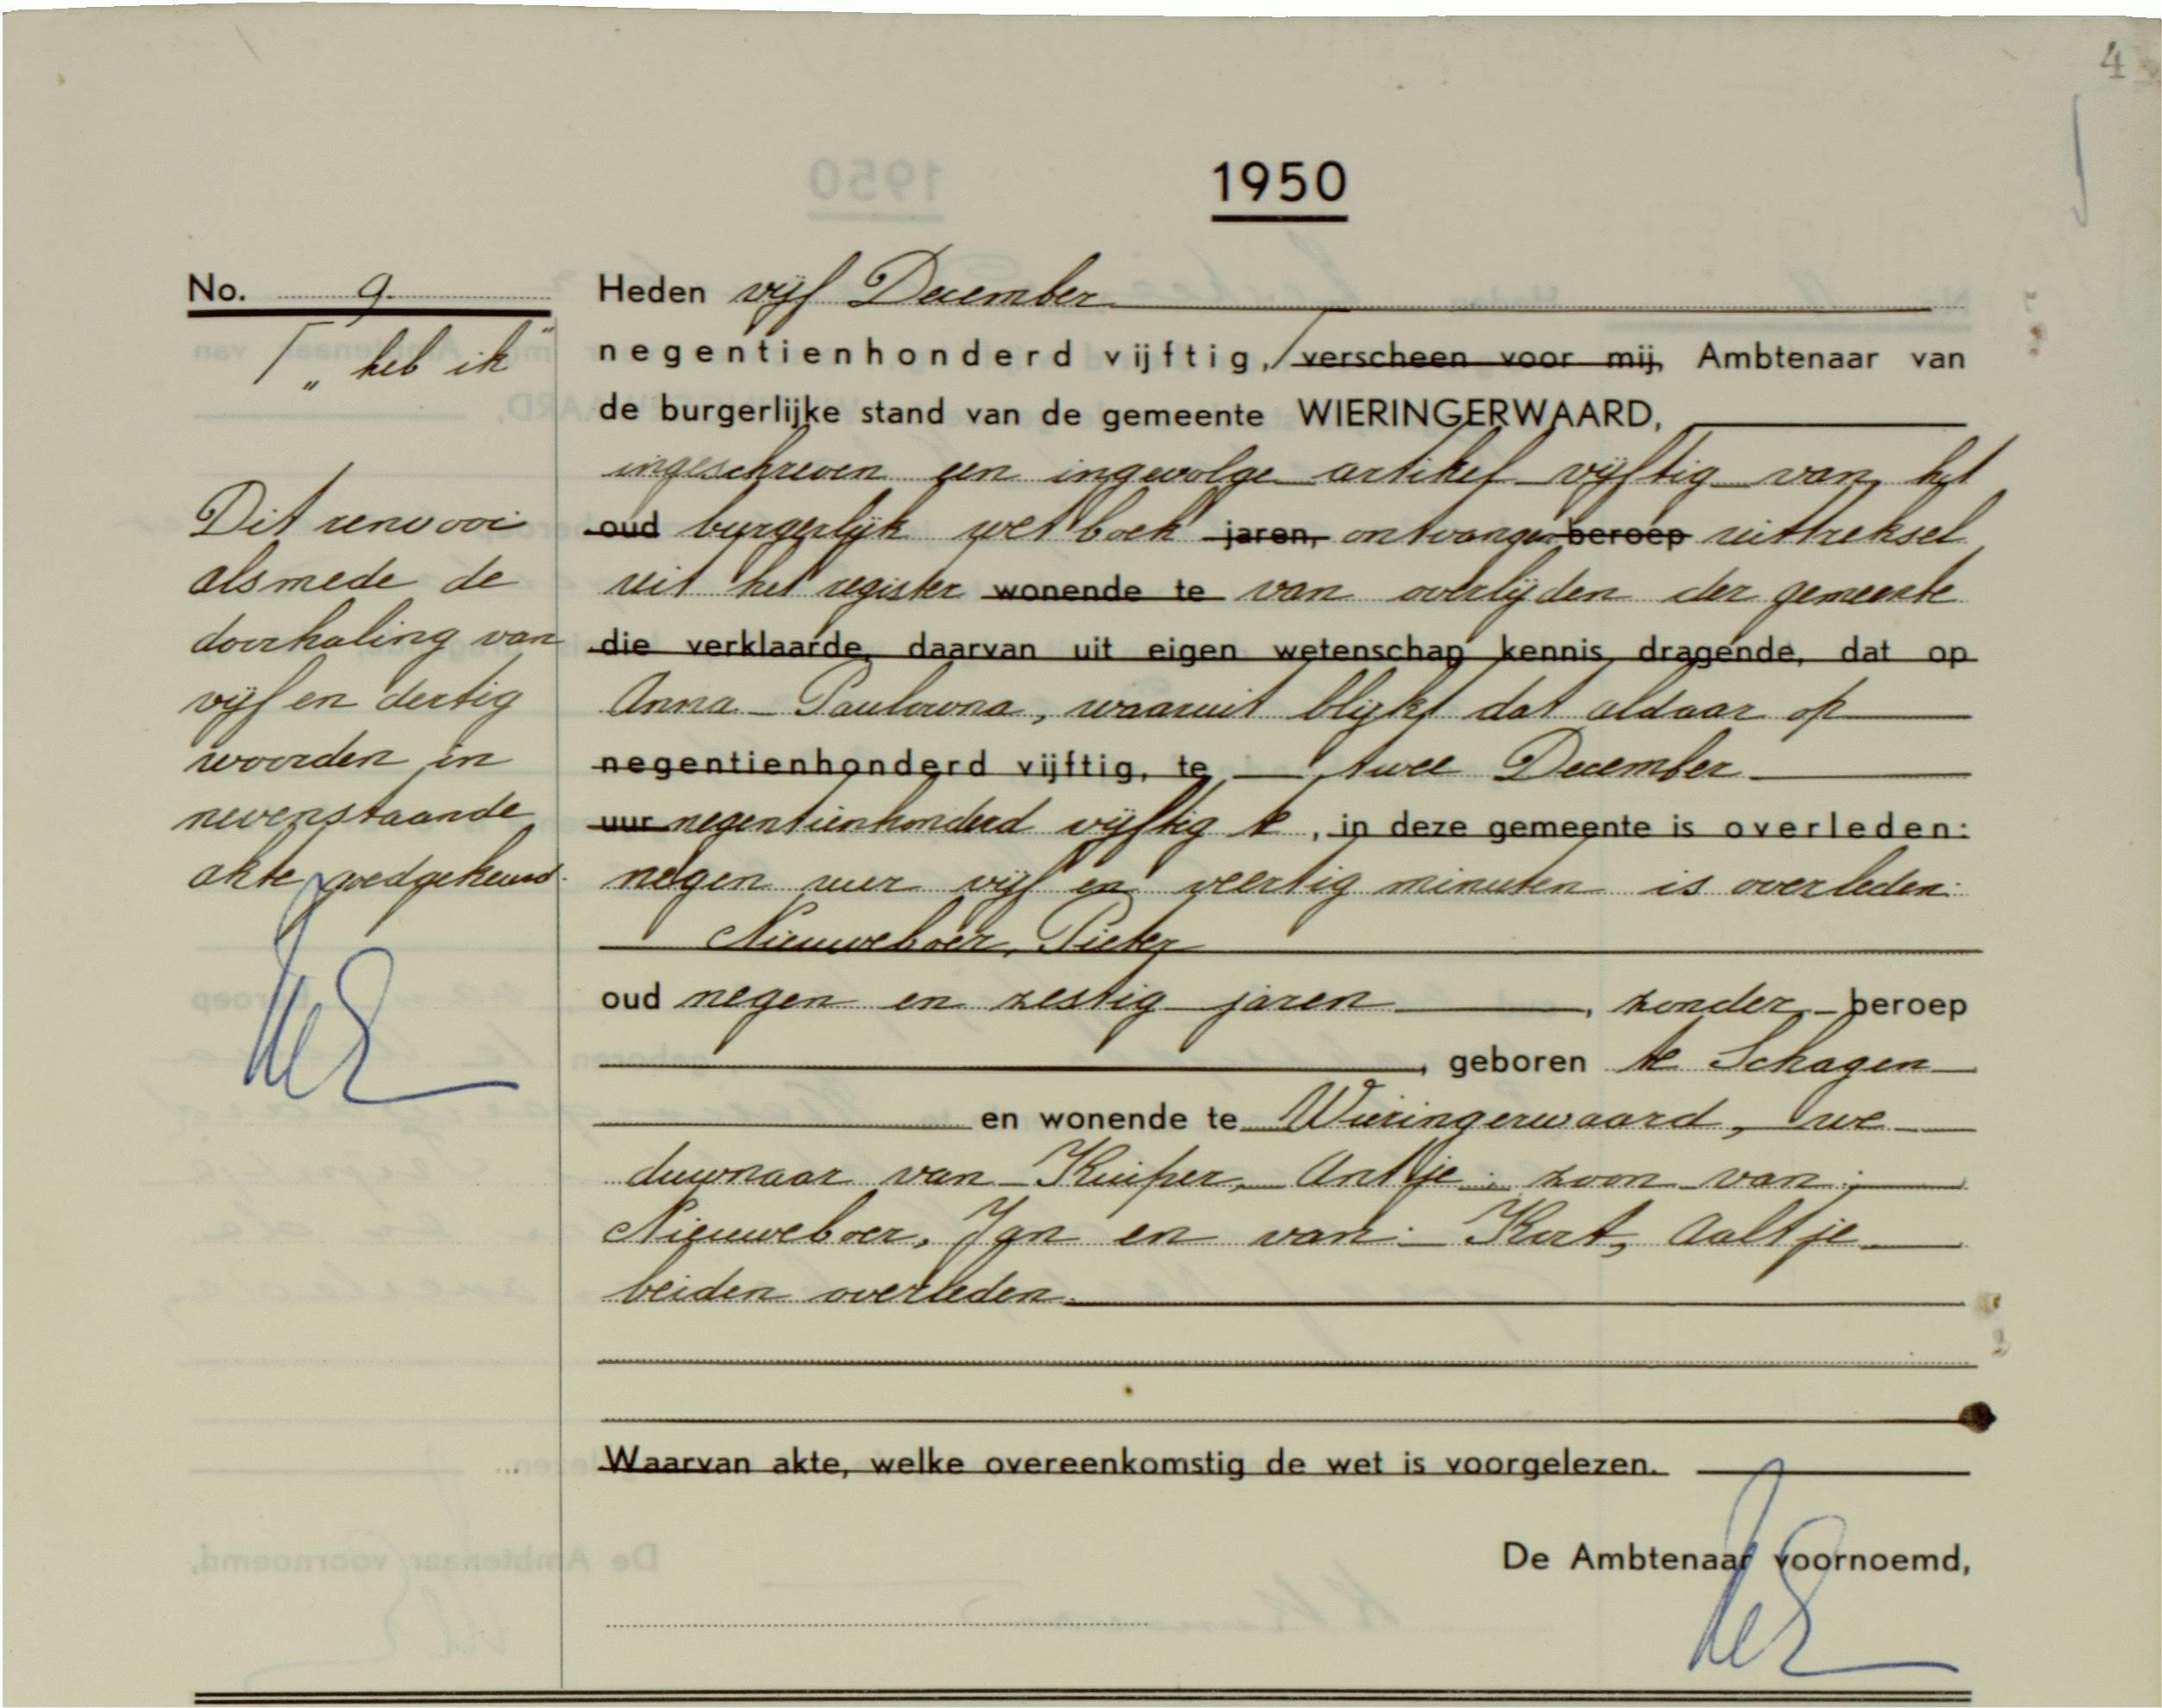 4
1950
No. 9.
Heden vijf December
⌈ „ heb ik"
negentienhonderd vijftig,⌈ verscheen voor mij, Ambtenaar van
de burgerlijke stand van de gemeente WIERINGERWAARD,
ingeschreven een ingevolge artikel vijftig van het
oud burgerlijk wetboek jaren, ontvangen beroep uittreksel
uit het register wonende te van overlijden der gemeente
die verklaarde, daarvan uit eigen wetenschap kennis dragende, dat op
Anna Paulowna, waaruit blijkt dat aldaar op
negentienhonderd vijftig, te twee December
uur negentienhonderd vijftig te, in deze gemeente is overleden:
negen uur vijf en veertig minuten is overleden:
Nieuweboer, Pieter
oud negen en zestig jaren, zonder beroep
, geboren te Schagen
en wonende te Wieringerwaard, we
duwnaar van Kuiper, Antje; zoon van:
Nieuweboer, Jan en van: Kort, Aaltje
beiden overleden.
Waarvan akte, welke overeenkomstig de wet is voorgelezen.
De Ambtenaar voornoemd,
Dit renvooi
alsmede de
doorhaling van
vijf en dertig
woorden in
nevenstaande
akte goedgekeurd.